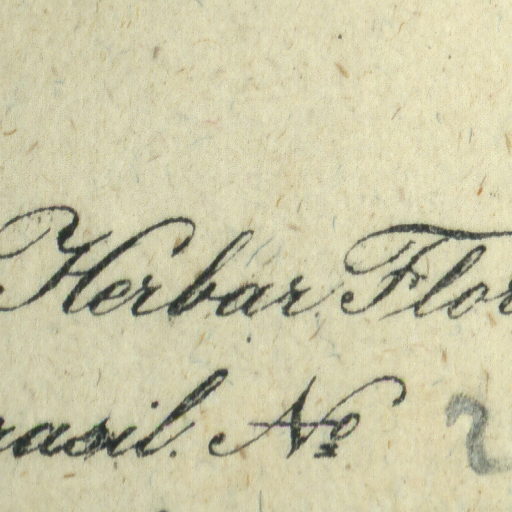 Herbar. Flor
rasil. Nº 2